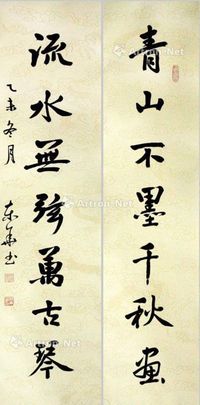 青山不墨千秋画
流水無弦萬古琴
乙未冬月
东华书
Artron.Net
Artron.Net